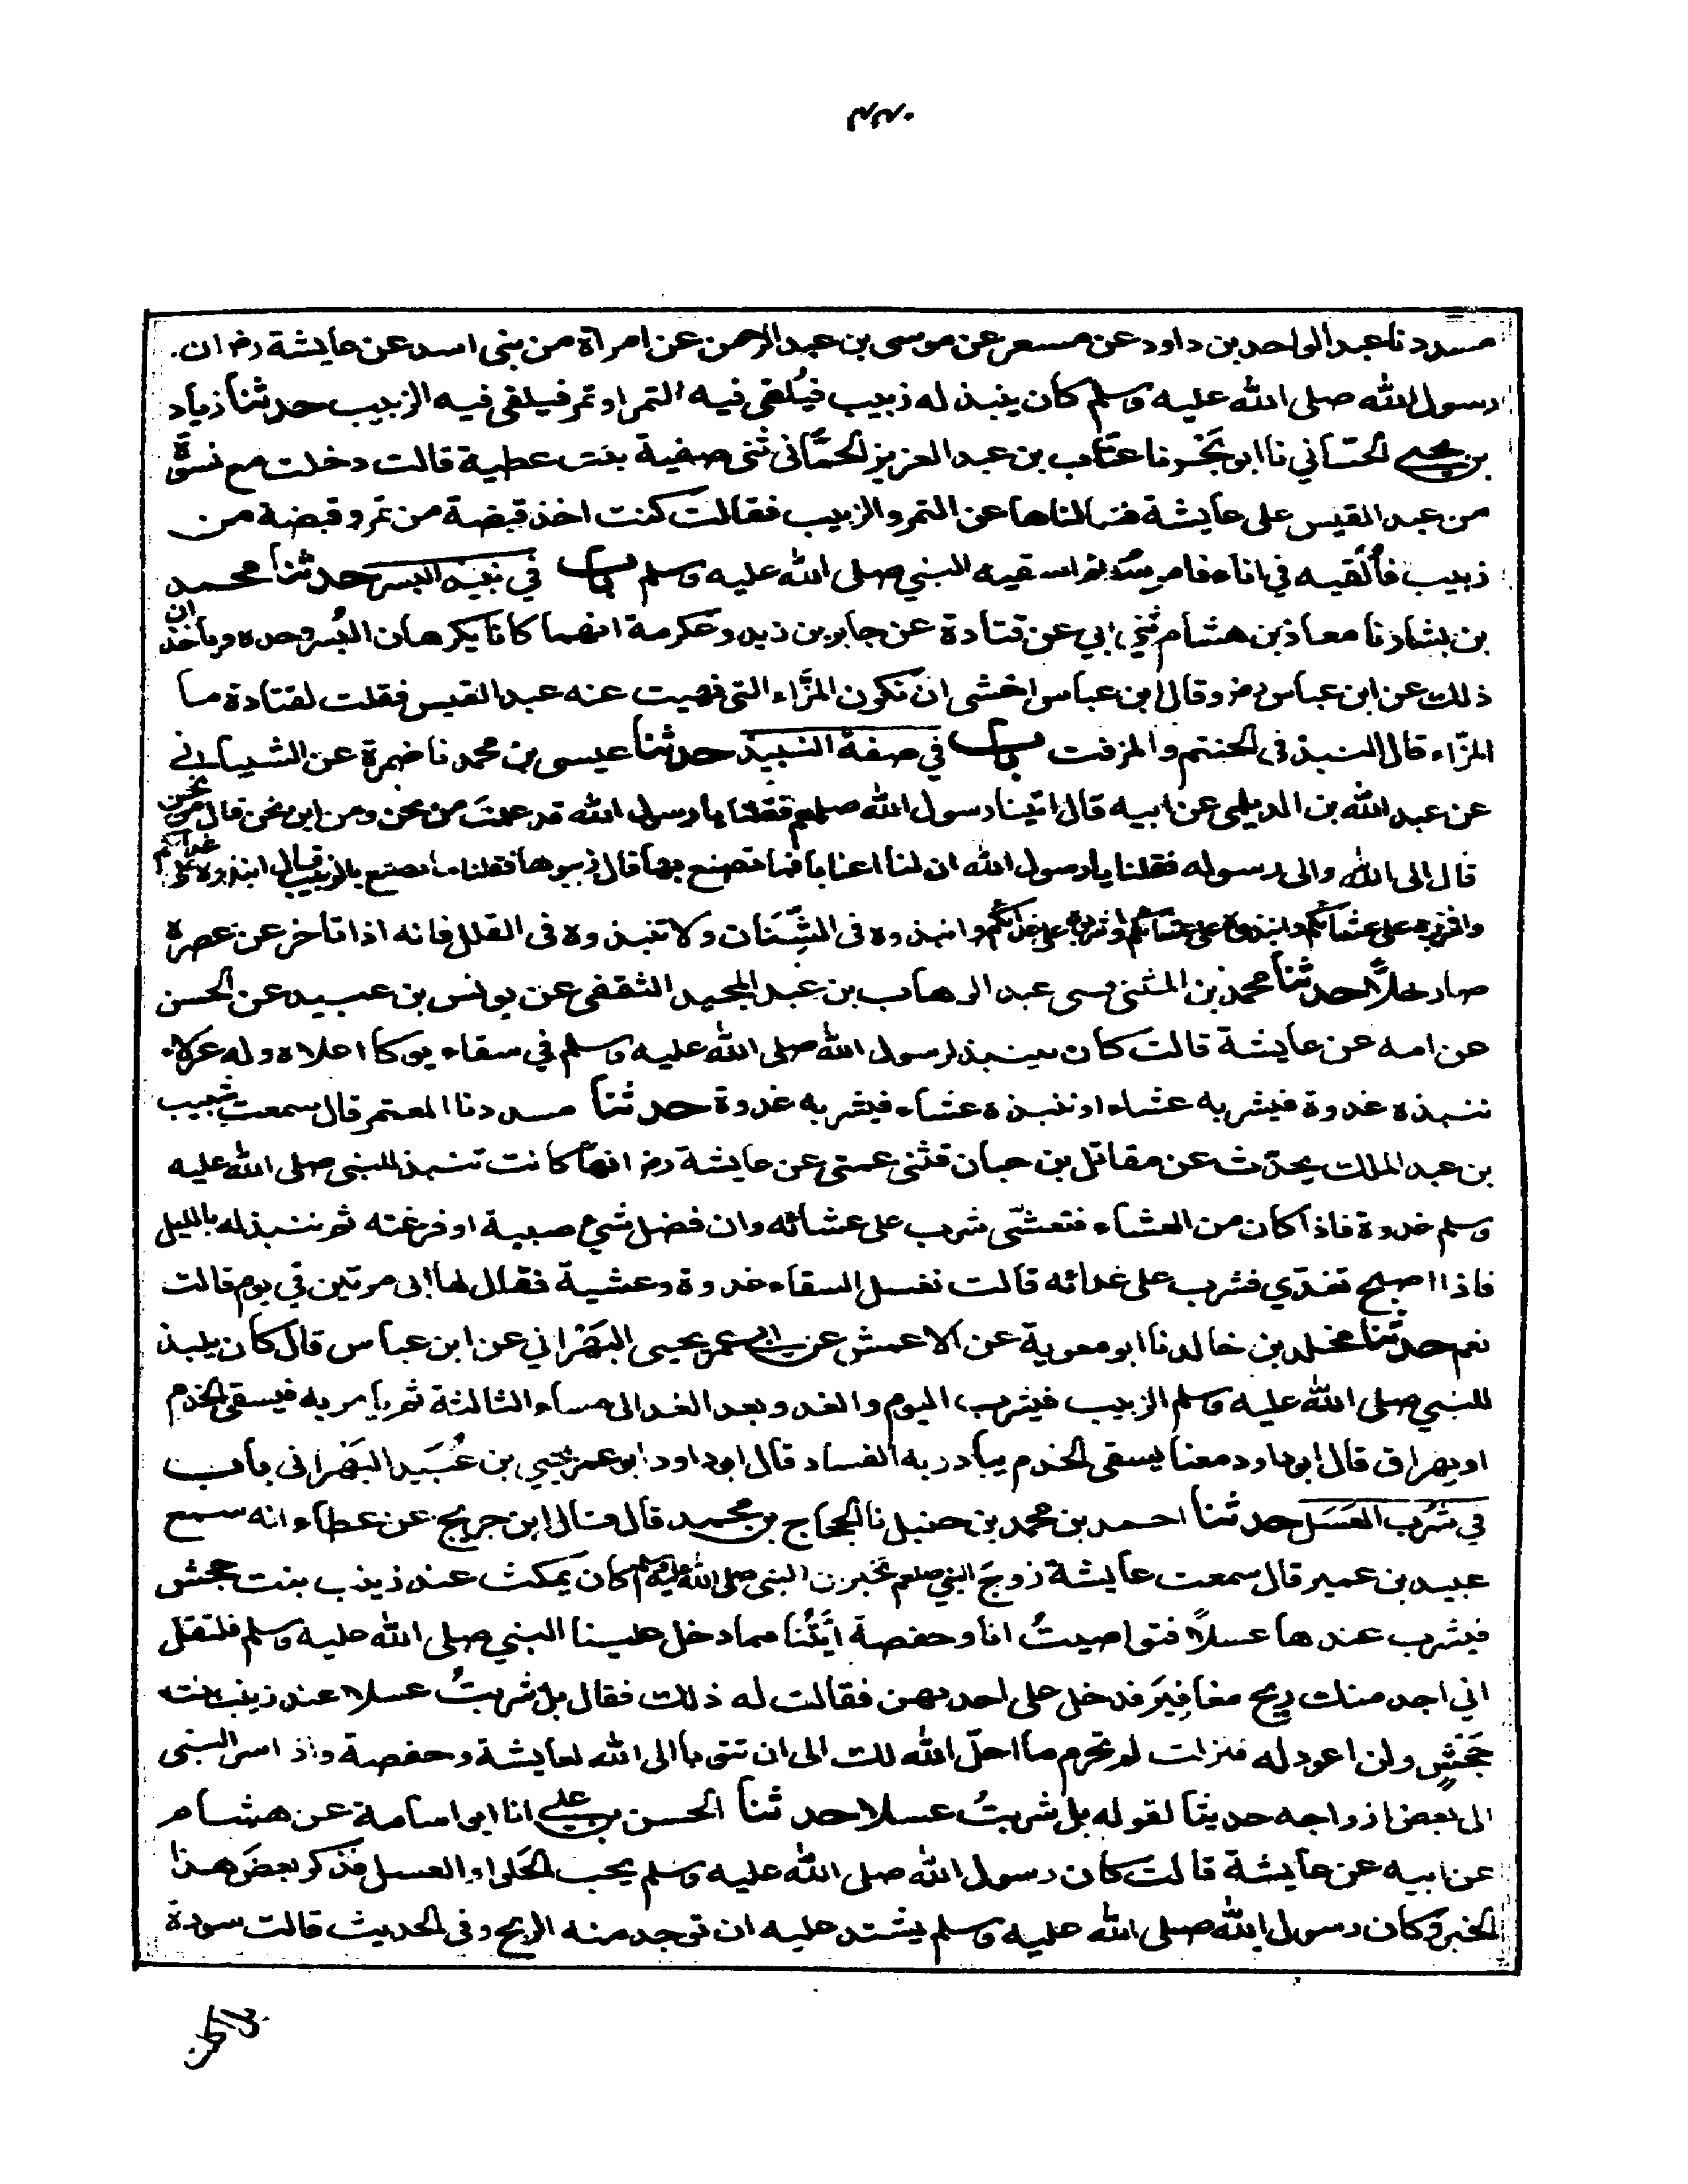 مسدد نا عبد الواحد بن داود عن مسعر عن موسى بن عبد الرحمن عن امراة من بنى اسد عن عايشة رض ان
رسول الله صلى الله عليه وسلم كان ينبذ له زبيب فيُلقى فيه التمر او تمر فيلقى فيه الزبيب حدثنا زياد
بن يحيى الحسّاني نا ابو بَحْر نا عتّاب بن عبد العزيز الحِمّاني ثنى صفية بنت عطية قالت دخلت مع نسوَة
من عبد القيس على عايشة فسالناها عن التمر والزبيب فقالت كنت اخذ قبضة من تمر وقبضة من
زبيب فأُلْقيه في اناء فامرسُه ثم اسقيه النبي صلى الله عليه وسلم باب في نبيذ البسر حدثنا محمد
بن بشار نا معاذ بن هشام ثني ابي عن قتادة عن جابر بن زيد وعكرمة انهما كانا يكرهان البُسر وحده وياخذان
ذلك عن ابن عباس رض وقال ابن عباس اخشى ان تكون المزّاء التى نهيت عنه عبد القيس فقلت لقتادة ما
المزّاء قال النبيذ فى الحنتم والمزفت باب في صفة النبيذ حدثنا عيسى بن محمد نا ضمرة عن الشيباني
عن عبد الله بن الديلمى عن ابيه قال اتينا رسول الله صلعم فقلنا يا رسول الله قد علمتَ من نحن ومن اين نحن قال من نحن
قال الى الله والى رسوله فقلنا يا رسول الله ان لنا اعنابا فما نصنع بها قال زببوها فقلنا ما نصنع بالزبيب قال انبذوه على غدائكم
واشربوه على عشائكم وانبذوه على عشائكم واشربوه على غدائكم وانبذوه فى الشِّنَان ولا تنبذوه فى القلل فانه اذا تاخر عن عصره
صار خلاًّ حدثنا محمد بن المثنى ثنى عبد الوهاب بن عبد المجيد الثقفى عن يونس بن عبيد عن الحسن
عن امه عن عايشة قالت كان ينبذ لرسول الله صلى الله عليه وسلم في سقاء يوكا اعلاه وله عزلاء
ننبذه غدوة فيشربه عشاء او ننبذه عشاء فيشربه غدوة حدثنا مسدد نا المعتمر قال سمعت شبيب
بن عبد الملك يحدّث عن مقاتل بن حيان قثنى عمتى عن عايشة رض انها كانت تنبذ للنبى صلى الله عليه
وسلم غدوة فاذا كان من العشاء فتعشّى شرب على عشائه وان فضل شيء صببته او فرغته ثم ننبذ له بالليل
فاذا اصبح تغدّي فشرب على غدائه قالت نغسل السقاء غدوة وعشية فقال لها ابى مرتين في يوم قالت
نعم حدثنا مخلد بن خالد نا ابو معوية عن الاعمش عن ابى عمر يحيى البَهْراني عن ابن عباس قال كان ينبذ
للنبي صلى الله عليه وسلم الزبيب فيشربه اليوم والغد وبعد الغد الى مساء الثالثة ثم يامر به فيسقى الخدم
او يهراق قال ابو داود معنا يسقى الخدم يبادر به الفساد قال ابو داود ابو عمر يحيي بن عُبَيد البَهْرانى باب
في شُرب العَسَل حدثنا احمد بن محمد بن حنبل نا الحجاج بن محمد قال قال ابن جريج عن عطاء انه سمع
عبيد بن عمير قال سمعت عايشة زوجَ النبي صلعم تخبر ان النبى صلى الله عليه وسلم كان يَمكث عند زينب بنت جحش
فيشرب عندها عسلاً فتواصيتُ انا وحفصة ايَّتُنا مما دخل علينا النبي صلى الله عليه وسلم فلتقل
اني اجد منك ريح مغافِيَر فدخل على احديهن فقالت له ذلك فقال بل شربتُ عسلا عند زينب بنت
جَحْشٍ ولن اعود له فنزلت لم تحرم ما احلّ الله لك الى ان تتوبا الى الله لعايشة وحفصة واذ اسر النبى
الى بعض ازواجه حديثا لقوله بل شربتُ عسلا حدثنا الحسن بن علي انا ابو اسامة عن هشام
عن ابيه عن عايشة قالت كان رسول الله صلى الله عليه وسلم يحب الحَلواء والعسل فذكر بعضَ هذا
الخبر وكان رسول الله صلى الله عليه وسلم يشتد عليه ان توجد منه الريح وفى الحديث قالت سودة